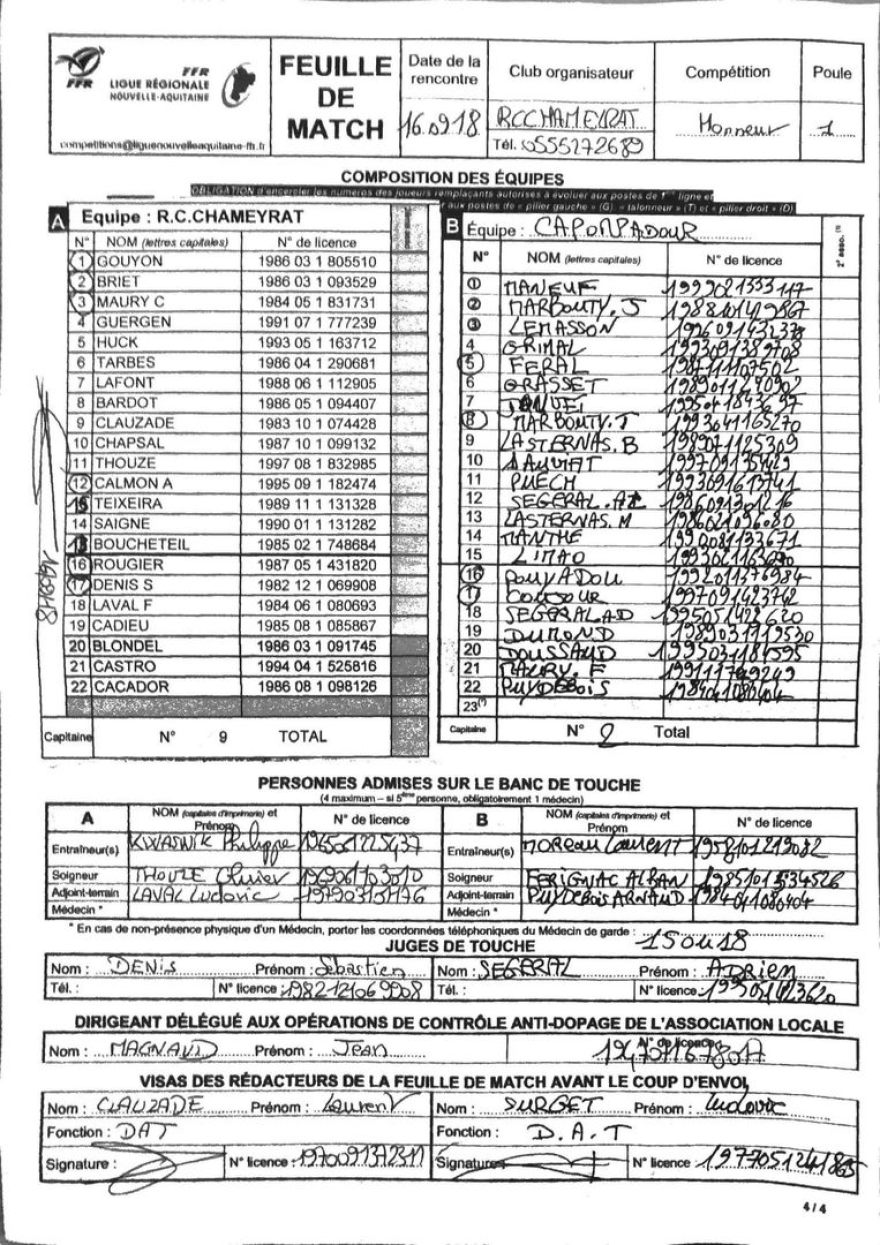 FFR
FFR
LIGUE RÉGIONALE
NOUVELLE-AQUITAINE
competitions@liguenouvelleaquitaine-ffr.fr
FEUILLE
DE
MATCH
Date de la
rencontre
16.09.18
Club organisateur
RCCHAMEYRAT
Tél. 0555272689
Compétition
Honneur
Poule
1
COMPOSITION DES ÉQUIPES
OBLIGATION d'encercler les numéros des joueurs remplaçants autorisés à évoluer aux postes de 1ère ligne et
aux postes de « pilier gauche » (G), « talonneur » (T) et « pilier droit » (D)
A Equipe : R.C.CHAMEYRAT
N° NOM (lettres capitales) N° de licence
1 GOUYON 1986 03 1 805510
2 BRIET 1986 03 1 093529
3 MAURY C 1984 05 1 831731
4 GUERGEN 1991 07 1 777239
5 HUCK 1993 05 1 163712
6 TARBES 1986 04 1 290681
7 LAFONT 1988 06 1 112905
8 BARDOT 1986 05 1 094407
9 CLAUZADE 1983 10 1 074428
10 CHAPSAL 1987 10 1 099132
11 THOUZE 1997 08 1 832985
12 CALMON A 1995 09 1 182474
15 TEIXEIRA 1989 11 1 131328
14 SAIGNE 1990 01 1 131282
13 BOUCHETEIL 1985 02 1 748684
16 ROUGIER 1987 05 1 431820
17 DENIS S 1982 12 1 069908
18 LAVAL F 1984 06 1 080693
19 CADIEU 1985 08 1 085867
20 BLONDEL 1986 03 1 091745
21 CASTRO 1994 04 1 525816
22 CACADOR 1986 08 1 098126
Capitaine N° 9 TOTAL
B Équipe : CAPONPADOUR
N° NOM (lettres capitales) N° de licence
2e asso. (1)
1 MANEUF 1999021333117
2 MARBOUTY.J
3 LEMASSON
4 GRIMAL 1993091389708
5 FERAL 1987111107502
6 GRASSET 1989011290902
7
8 MARBOUTY.T 1993041165270
9 LASTERNAS.B 1989071125309
10 DAUVIAT
11 PUECH
12 SEGERAL.
13 LASTERNAS.M 1986021096080
14 MANTHE 1990081133671
15 LIMAO
16 POUYADOU 1992011376984
17 1997091423742
18 SEGERAL AD 1995051423620
19 DUMOND
20 DOUSSAUD 1995031184595
21 MAURY.F
22 PUYDEBOIS 1984041080404
23(*)
Capitaine N° 2 Total
PERSONNES ADMISES SUR LE BANC DE TOUCHE
(4 maximum – si 5ème personne, obligatoirement 1 médecin)
A NOM (capitales d'imprimerie) et Prénom N° de licence
Entraîneur(s) KWASNIK Philippe
Soigneur THOUZE Olivier
Adjoint-terrain LAVAL Ludovic
Médecin *
B NOM (capitales d'imprimerie) et Prénom N° de licence
Entraîneur(s) MOREAU Laurent 1958101219082
Soigneur FERIGNAC ALBAN 1985101534526
Adjoint-terrain PUYDEBOIS ARNAUD 1984041080404
Médecin *
* En cas de non-présence physique d'un Médecin, porter les coordonnées téléphoniques du Médecin de garde : 15 ou 18
JUGES DE TOUCHE
Nom : DENIS Prénom : Sébastien
Tél. : N° licence : 1982121069908
Nom : SEGERAL Prénom : ADRIEN
Tél. : N° licence : 1995051423620
DIRIGEANT DÉLÉGUÉ AUX OPÉRATIONS DE CONTRÔLE ANTI-DOPAGE DE L'ASSOCIATION LOCALE
Nom : MAGNAUD Prénom : Jean N° de licence
VISAS DES RÉDACTEURS DE LA FEUILLE DE MATCH AVANT LE COUP D'ENVOI
Nom : CLAUZADE Prénom : Laurent
Fonction : DAT
Signature : N° licence : 1970091372311
Nom : SURGET Prénom : Ludovic
Fonction : D.A.T
Signature : N° licence : 1977051241865
4 / 4